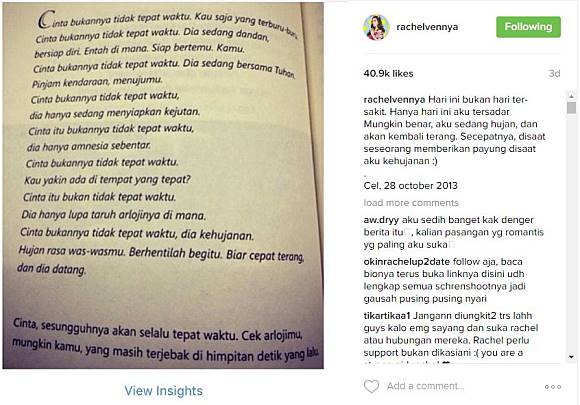 Cinta bukannya tidak tepat waktu. Kau saja yang terburu-buru.
Cinta bukannya tidak tepat waktu. Dia sedang dandan,
bersiap diri. Entah di mana. Siap bertemu. Kamu.
Cinta bukannya tidak tepat waktu. Dia sedang bersama Tuhan.
Pinjam kendaraan, menujumu.
Cinta bukannya tidak tepat waktu,
dia hanya sedang menyiapkan kejutan.
Cinta itu bukannya tidak tepat waktu,
dia hanya amnesia sebentar.
Cinta bukannya tidak tepat waktu.
Kau yakin ada di tempat yang tepat?
Cinta itu bukan tidak tepat waktu.
Dia hanya lupa taruh arlojinya di mana.
Cinta bukannya tidak tepat waktu, dia kehujanan.
Hujan rasa was-wasmu. Berhentilah begitu. Biar cepat terang,
dan dia datang.
Cinta, sesungguhnya akan selalu tepat waktu. Cek arlojimu,
mungkin kamu, yang masih terjebak di himpitan detik yang lalu.
View Insights
rachelvennya
Following
40.9k likes
3d
rachelvennya Hari ini bukan hari ter-
sakit. Hanya hari ini aku tersadar
Mungkin benar, aku sedang hujan, dan
akan kembali terang. Secepatnya, disaat
seseorang memberikan payung disaat
aku kehujanan :)
.
Cel, 28 october 2013
load more comments
aw.dryy aku sedih banget kak denger
berita itu, kalian pasangan yg romantis
yg paling aku suka
okinrachelup2date follow aja, baca
bionya terus buka linknya disini udh
lengkap semua schrenshootnya jadi
gausah pusing pusing nyari
tikartikaa1 Jangann diungkit2 trs lahh
guys kalo emg sayang dan suka rachel
atau hubungan mereka. Rachel perlu
support bukan dikasiani :( you are a
Add a comment...